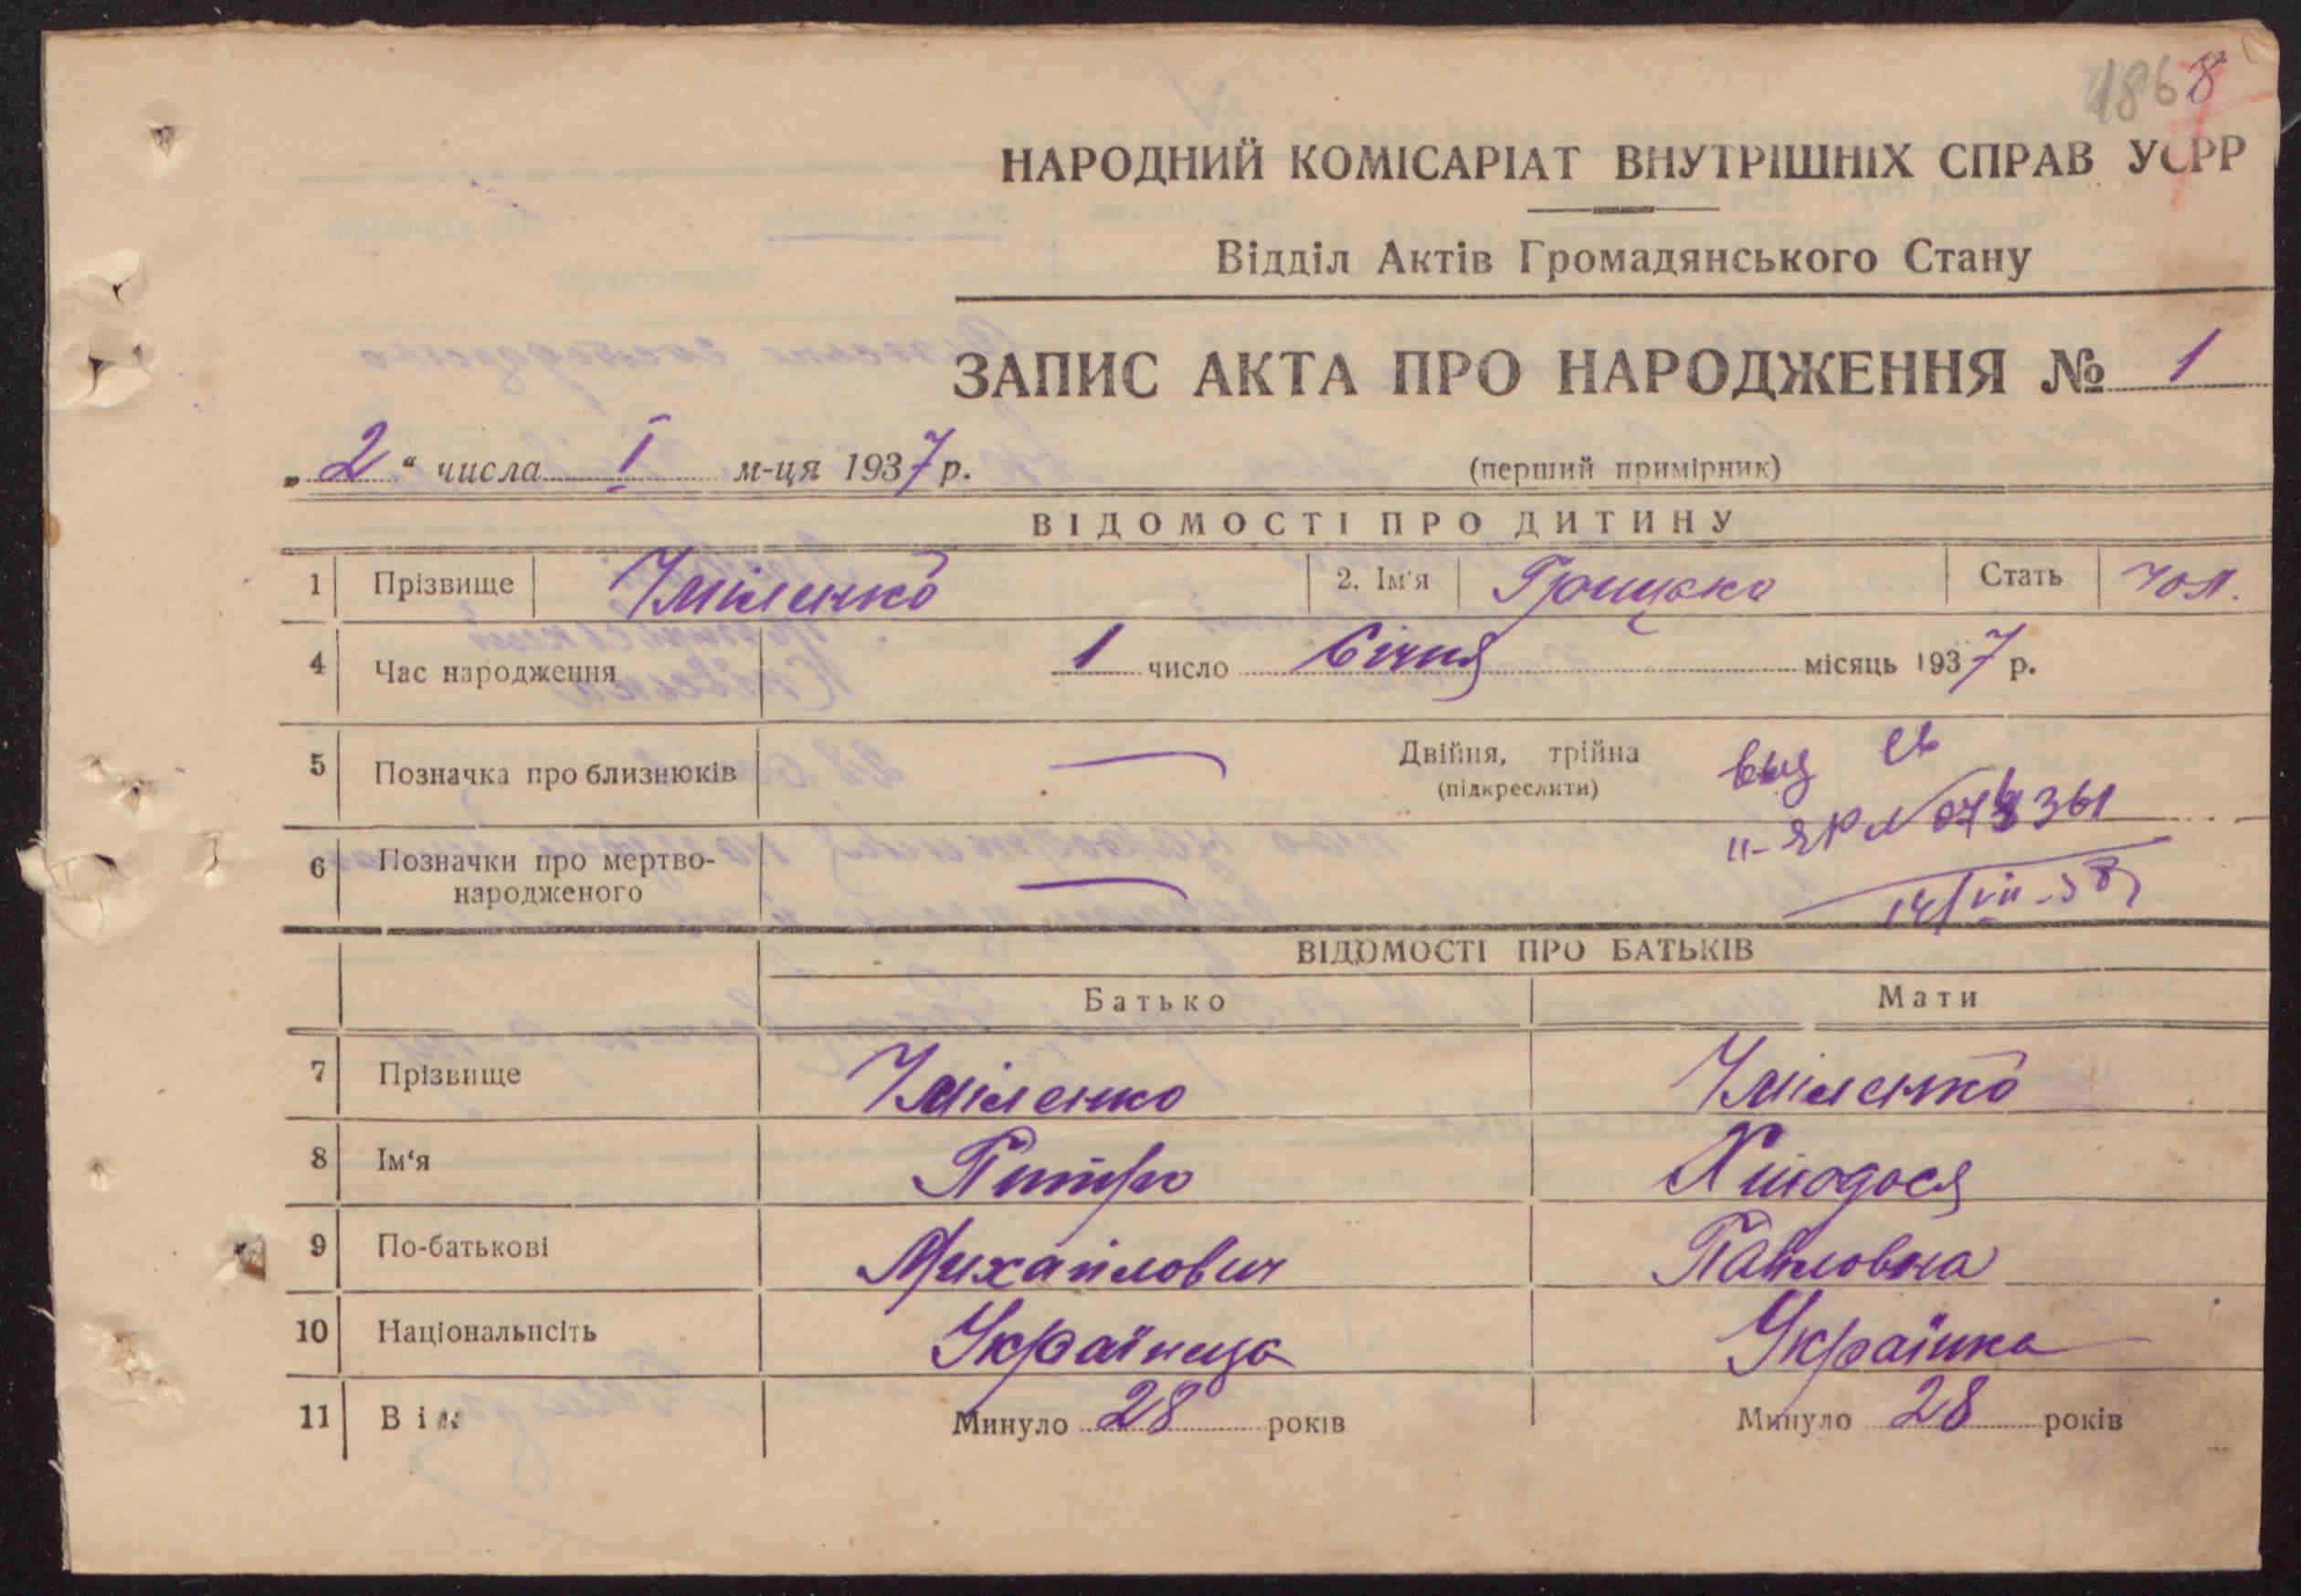 1868
НАРОДНИЙ КОМІСАРІАТ ВНУТРІШНІХ СПРАВ УСРР
Відділ Актів Громадянського Стану
ЗАПИС АКТА ПРО НАРОДЖЕННЯ № 1
„2“ числа I м-ця 1937 р. (перший примірник)
ВІДОМОСТІ ПРО ДИТИНУ
1 Прізвище Іміленко 2. Ім'я Грицько Стать чол.
4 Час народження 1 число Січня місяць 1937 р.
5 Позначка про близнюків — Двійня, трійна
(підкреслити)
6 Позначки про мертво-
народженого —
14/VII-58
ВІДОМОСТІ ПРО БАТЬКІВ
Батько Мати
7 Прізвище Іміленко Іміленко
8 Ім‘я Питро Хиодося
9 По-батькові Михайлович Павловна
10 Національнсіть Українець Українка
11 Вік Минуло 28 років Минуло 28 років